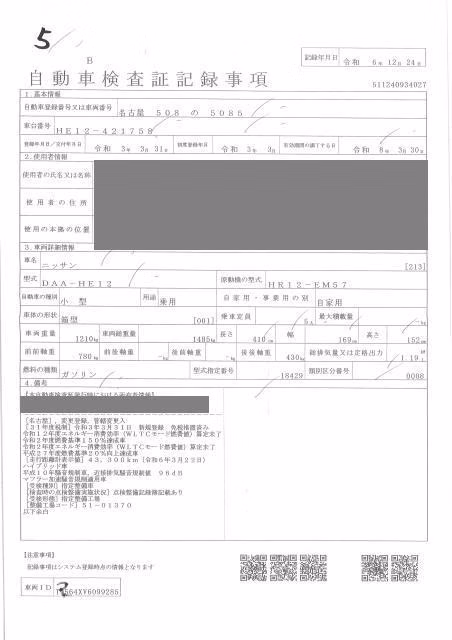 5
B
自動車検査証記録事項
記録年月日 令和 6年 12月 24日
511240934027
1.基本情報
自動車登録番号又は車両番号 名古屋 508 の 5085
車台番号 HE12-421758
登録年月日/交付年月日 令和 3年 3月 31日 初度登録年月 令和 3年 3月 有効期間の満了する日 令和 8年 3月 30日
2.使用者情報
使用者の氏名又は名称
使用者の住所
使用の本拠の位置
3.車両詳細情報
車名 ニッサン [213]
型式 DAA-HE12 原動機の型式 HR12-EM57
自動車の種別 小型 用途 乗用 自家用・事業用の別 自家用
車体の形状 箱型 [001] 乗車定員 5人 最大積載量 -kg
車両重量 1210kg 車両総重量 1485kg 長さ 410cm 幅 169cm 高さ 152cm
前前軸重 780kg 前後軸重 -kg 後前軸重 -kg 後後軸重 430kg 総排気量又は定格出力 1.19L
燃料の種類 ガソリン 型式指定番号 18429 類別区分番号 0008
4.備考
[名古屋],変更登録,管轄変更入
[31年度税制]令和3年3月31日 新規登録 免税措置済み
令和12年度エネルギー消費効率(WLTCモード燃費値)算定未了
令和2年度燃費基準150%達成車
令和2年度エネルギー消費効率(WLTCモード燃費値)算定未了
平成27年度燃費基準20%向上達成車
[走行距離計表示値]43,300km(令和6年3月22日)
ハイブリッド車
平成10年騒音規制車,近接排気騒音規制値 96dB
マフラー加速騒音規制適用車
[受検種別]指定整備車
[検査時の点検整備実施状況]点検整備記録簿記載あり
[受検形態]指定整備工場
[整備工場コード]51-01370
以下余白
【注意事項】
記録事項はシステム登録時点の情報となります
車両ID 564XY6099285